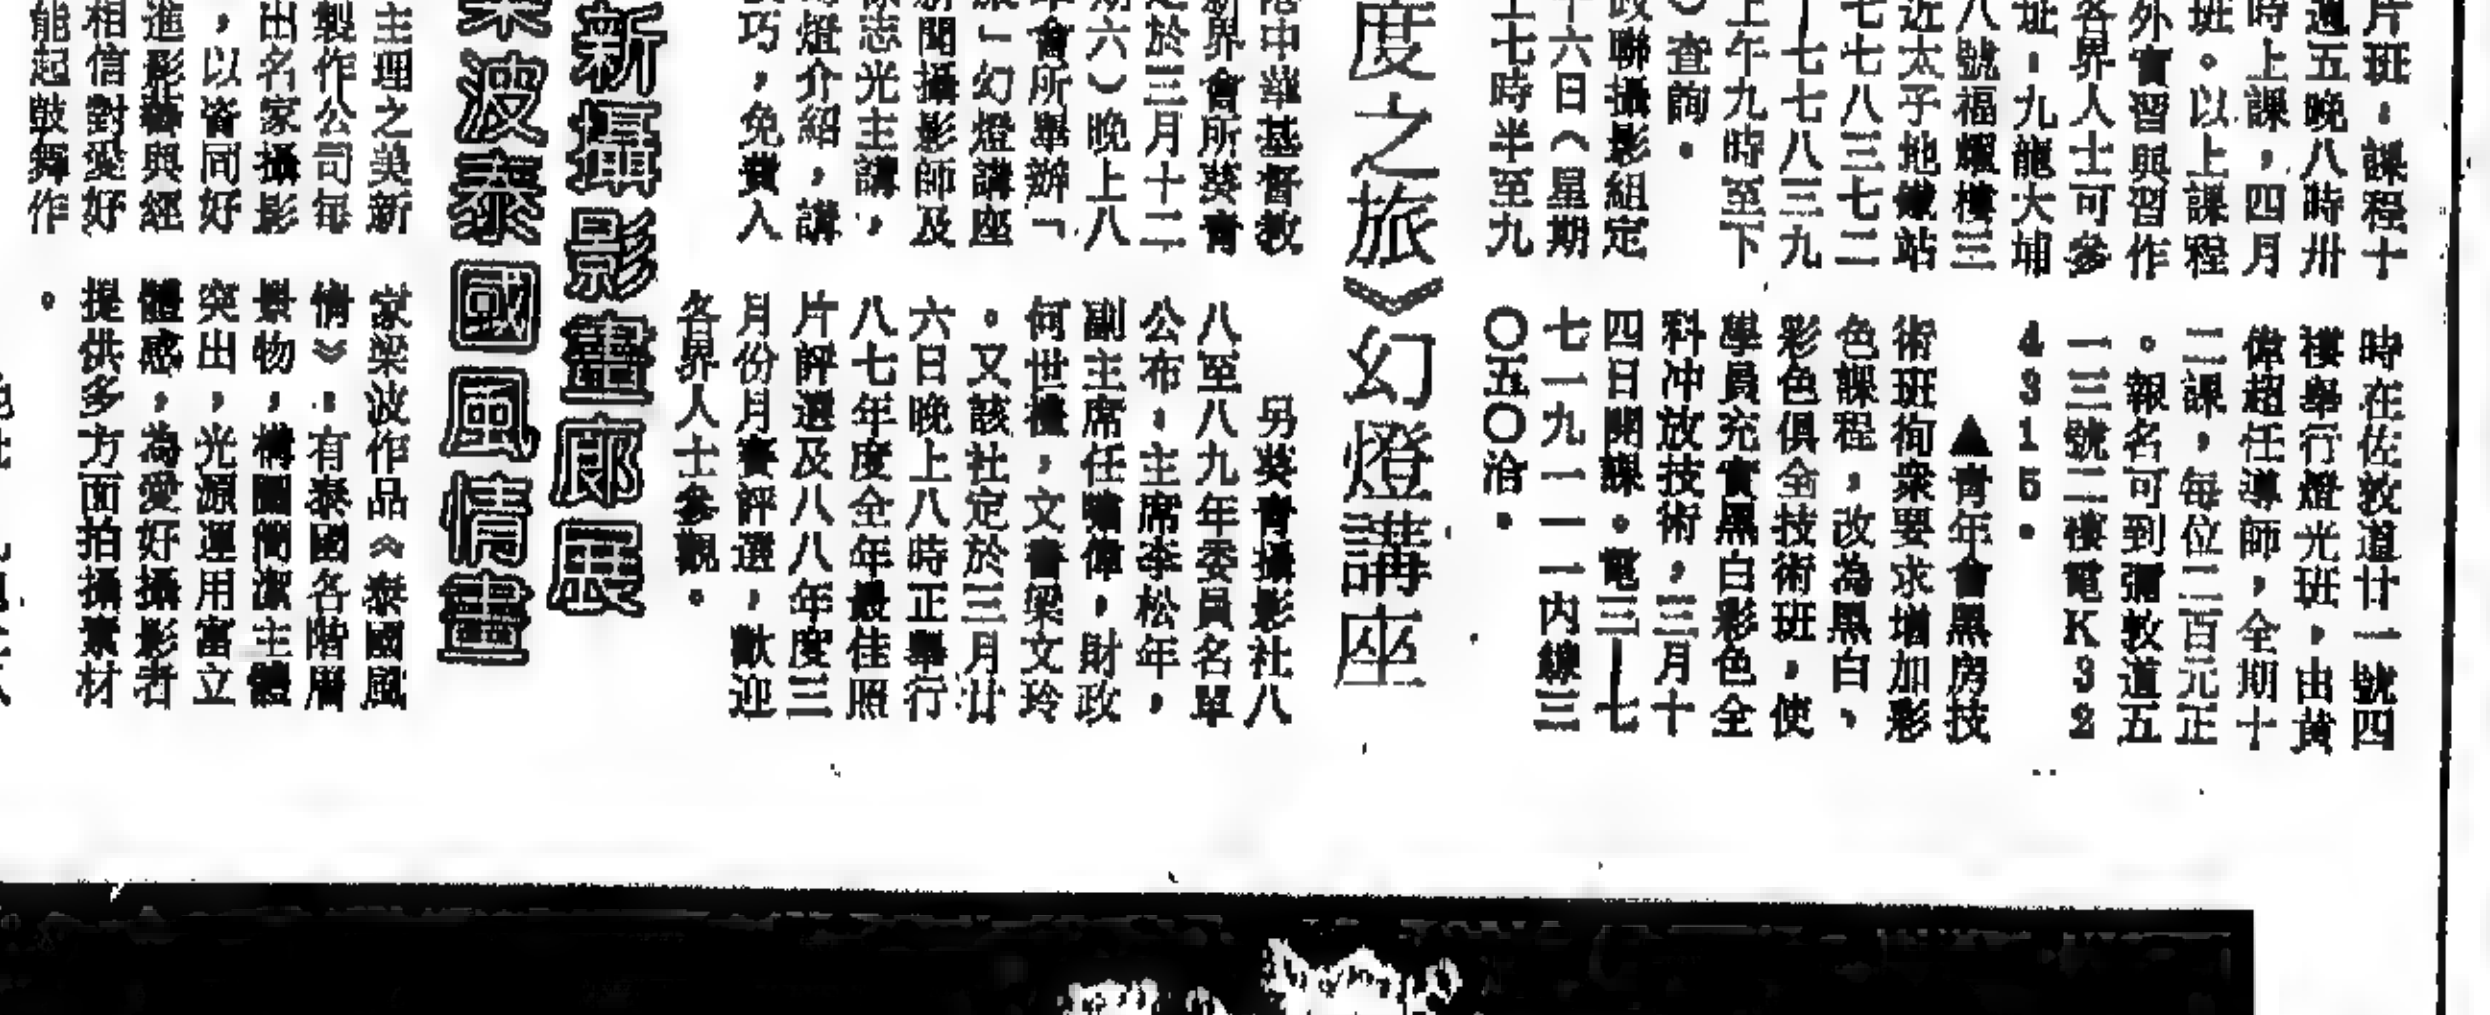 片班:課程十
週五晚八時卅
時上課,四月
班。以上課程
外實習與習作
各界人士可參
址:九龍大埔
八號福耀樓三
近太子地鐵站
七七八三七二
七七八三九
上午九時至下
)查詢。
政聯攝影組定
十六日(星期
七時半至九
時在佐敦道廿一號四
樓舉行燈光班,由黃
偉超任導師,全期十
二課,每位二百元正
。報名可到彌敦道五
一三號二樓電K32
4315。
▲青年會黑房技
術班徇衆要求增加彩
色課程,改為黑白、
彩色俱全技術班,使
學員充實黑白彩色全
科冲放技術,三月十
四日開課。電三—七
七一九一一一內線三
〇五〇洽。
度之旅》幻燈講座
港中華基督教
新界會所葵青
定於三月十二
期六)晚上八
會所舉辦「
旅」幻燈講座
新聞攝影師及
徐志光主講,
幻燈介紹,講
巧,免費入
另葵青攝影社八
八至八九年委員名單
公布:主席李松年,
副主席任曠偉,財政
何世權,文書梁文玲
。又該社定於三月廿
六日晚上八時正舉行
八七年度全年最佳照
片評選及八八年度三
月份月賽評選,歡迎
各界人士參觀。
新攝影畫廊展
梁波泰國風情畫
主理之美新
製作公司每
出名家攝影
,以資同好
進影藝與經
相信對愛好
能起鼓舞作
家梁波作品《泰國風
情》:有泰國各階層
景物,構圖簡潔主體
突出,光源運用富立
體感,為愛好攝影者
提供多方面拍攝素材
。